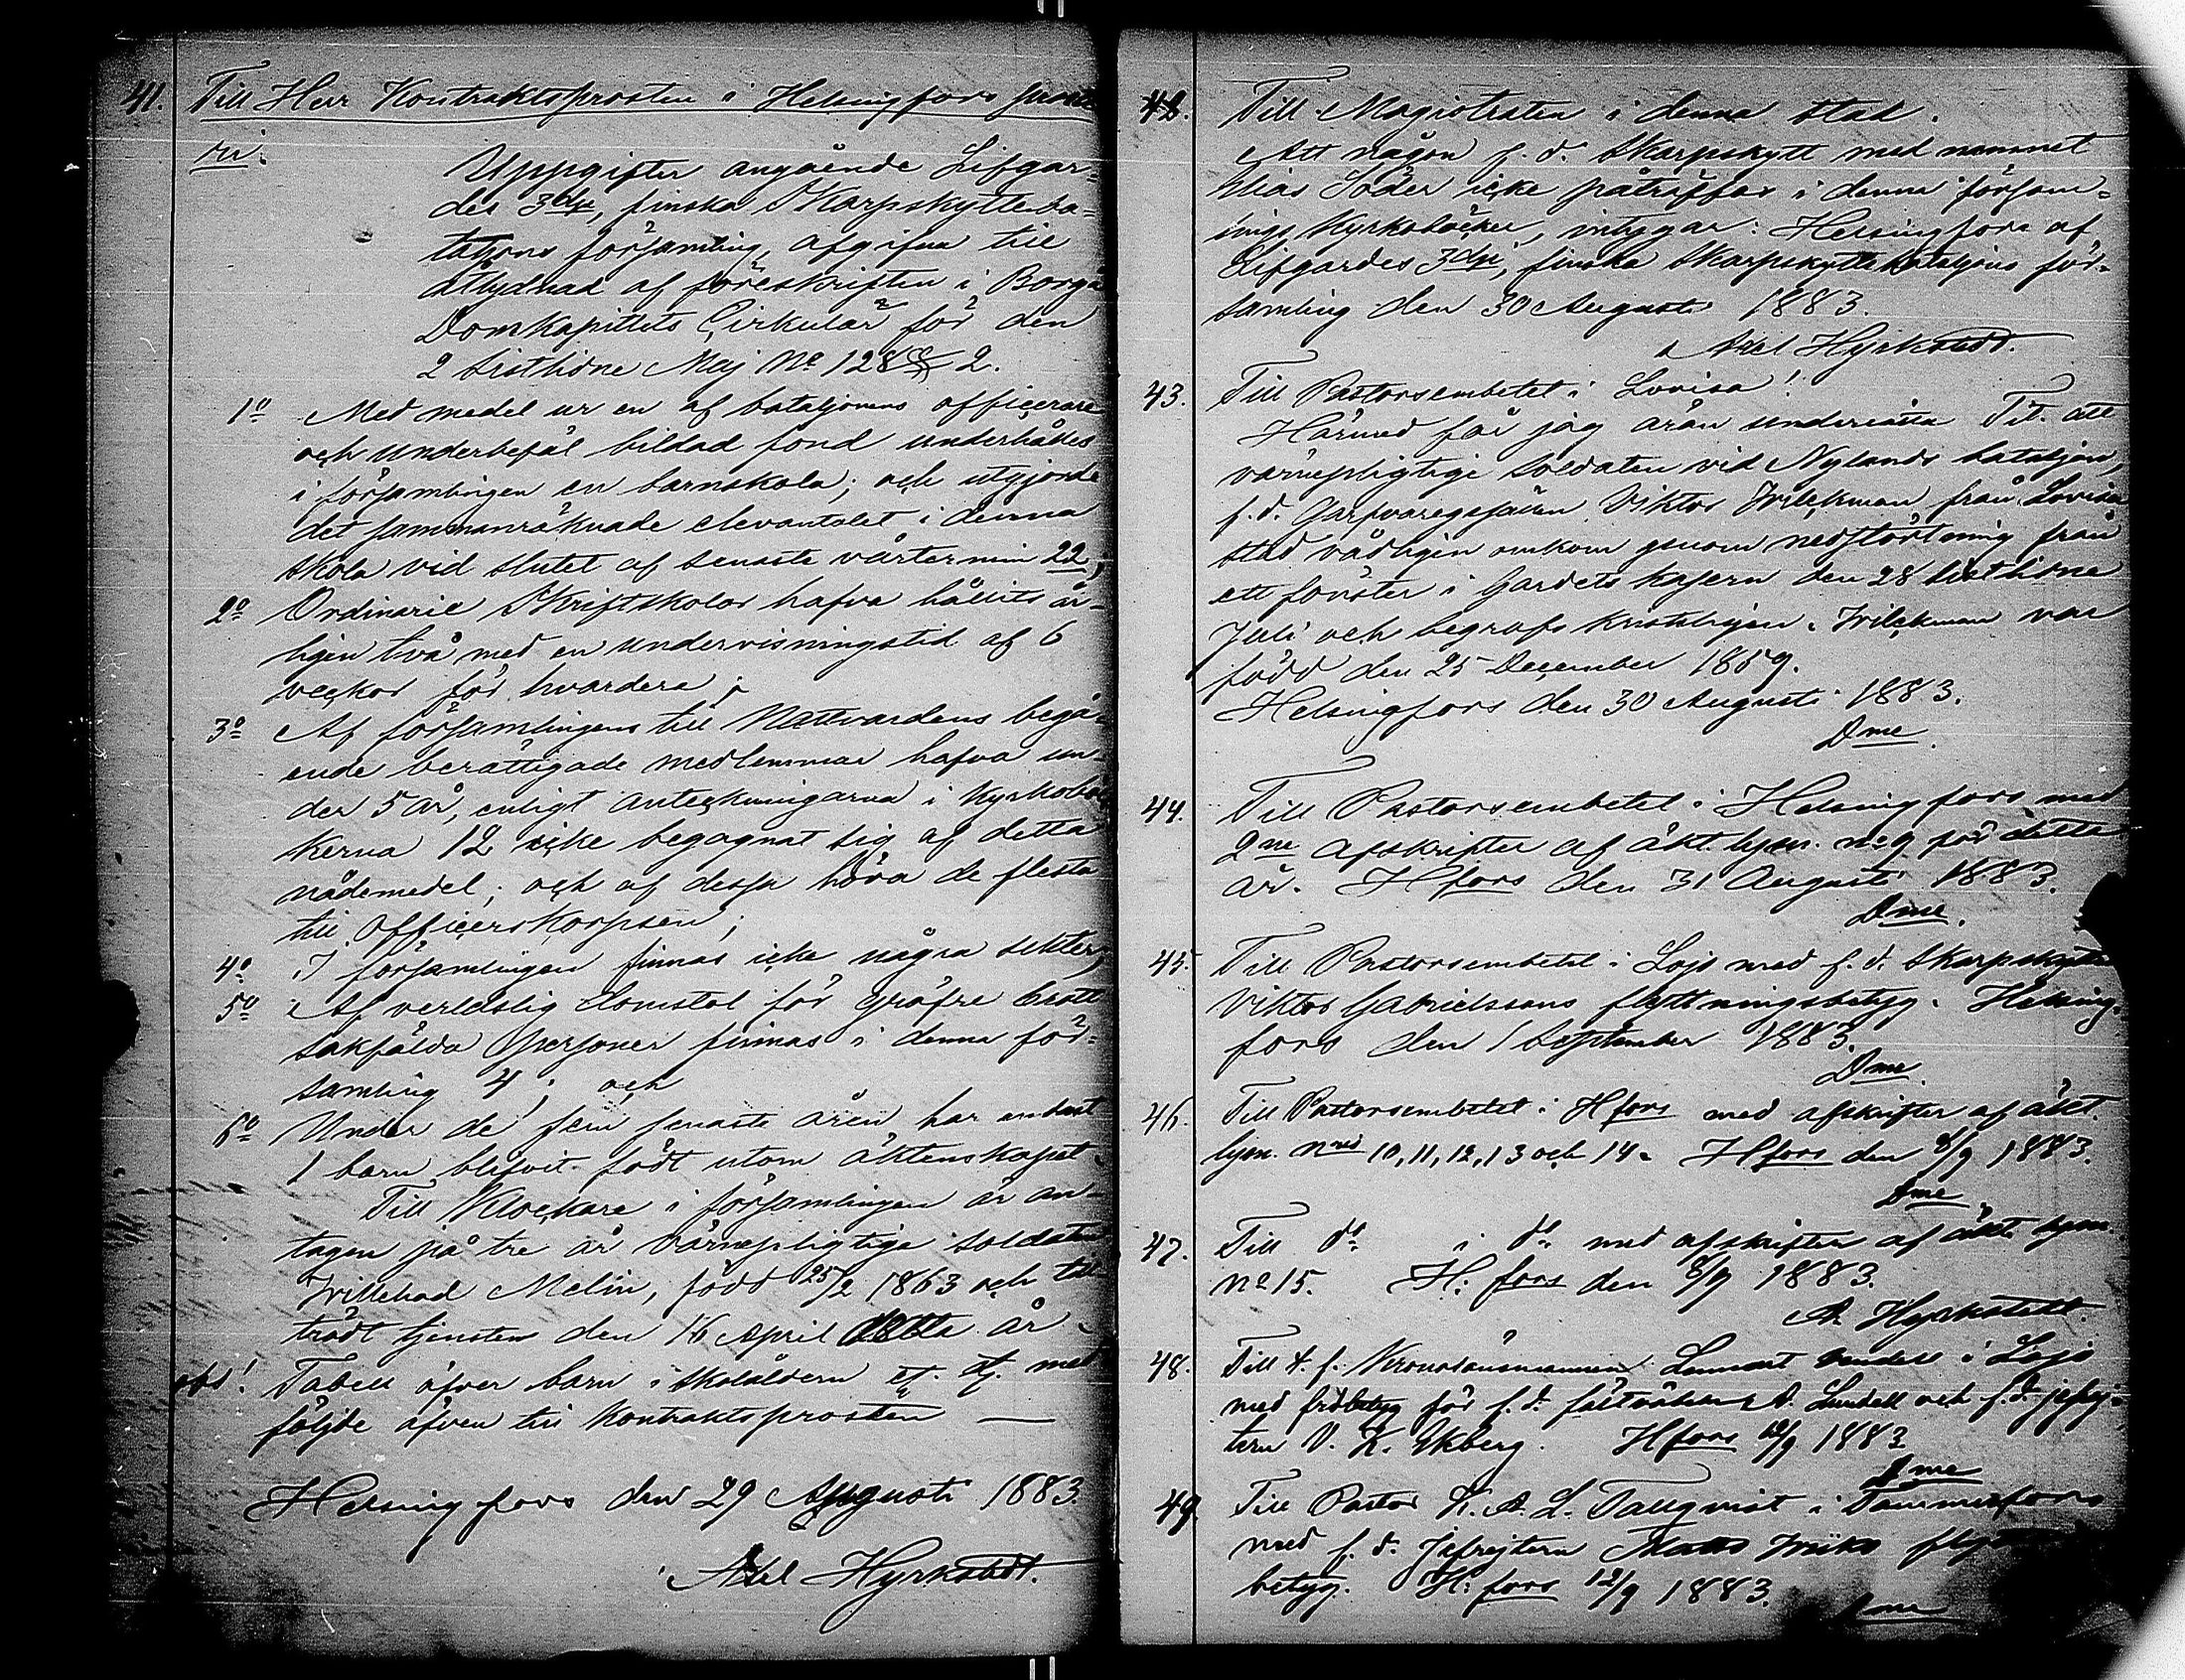 41. Till Herr Kontraktsprosten i Helsingfors
Uppgifter angående Lifgar-
des 3dje, finska Skarpskytteba-
taljons församling, afgifna till
åtlydnad af föreskriften i Borgå
Domkapitlets Cirkulär för den
2 sistlidne Maj No 128 § 2.
1o Med medel ur en af bataljonens officerare
och underbefäl bildad fond underhålles
i församlingen en barnskola; och utgjorde
det sammanräknade elevantalet i denna
skola vid slutet af senaste vårtermin 22;
2o Ordinarie Skriftskolor hafva hållits år-
ligen två med en undervisningstid af 6
veckor för hvardera;
3o Af församlingens till Nattvardens begå-
ende berättigade medlemmar hafva un-
der 5 år, enligt anteckningarna i kyrkobö
kerna 12 icke begagnat sig af detta
nådemedel; och af dessa höra de flesta
till officerskorpsen;
4o I församlingen finnas icke några sekter;
5o Af verldslig domstol för gröfre brott
sakfälda personer finnas i denna för-
samling 4; och
6o Under de fem senaste åren har endast
1 barn blifvit födt utom äktenskapet.
Till Klockare i församlingen är an-
tagen på tre år värnepligtige soldaten
Willehad Melin, född 25/2 1863 och till-
trädt tjensten den 16 April detta år.
obs! Tabell öfver barn i skolåldern etc. etc. med
följde äfven till Kontraktsprosten —
Helsingfors den 29 Augusti 1883.
Axel Hyrkstedt.
42. Till Magistraten i denna stad.
Att någon f. d. Skarpskytt med namnet
Elias Söder icke påträffas i denna försam-
lings Kyrkoböcker, intygar: Helsingfors af
Lifgardes 3dje, finska Skarpskyttebataljons för-
samling den 30 Augusti 1883.
Axel Hyrkstedt.
43. Till Pastorsembetet i Lovisa!
Härmed får jag äran underrätta Tit. att
värnepligtige soldaten vid Nylands bataljon,
f. d. Garfvaregesällen Viktor Wilckman från Lovisa
stad vådligen omkom genom nedstörtning från
ett fönster i Gardets kasern den 28 sistlidne
Juli och begrafs kristligen. Wilckman var
född den 25 December 1859.
Helsingfors den 30 Augusti 1883.
Dme.
44. Till Pastorsembetet i Helsingfors med
2ne afskrifter af äkt. lysn. no 9 för detta
år. Hfors den 31 Augusti 1883.
Dme.
45. Till Pastorsembetet i Lojo med f. d. Skarpskytten
Viktor Gabrielssons flyttningsbetyg. Helsing-
fors den 1 September 1883.
Dme.
46. Till Pastorsembetet i Hfors med afskrifter af äkt.
lysn. nris 10, 11, 12, 13 och 14. Hfors den 8/9 1883.
Dme
47. Till do i do med afskriften af äkt. lysn.
no 15. H:fors den 8/9 1883.
A. Hyrkstedt.
48. Till t. f. Kronolänsmannen Lennart i Lojo
med frdbetyg för f. d. fältväbeln A. Lundell och f. d. jefrej-
tern V. K. Ekberg. Hfors 12/9 1883
Dme
49. Till Pastor K. A. L. Tallqvist i Tammerfors
med f. d. Jefrejtern Matts
betyg. H:fors 12/9 1883.
Dme